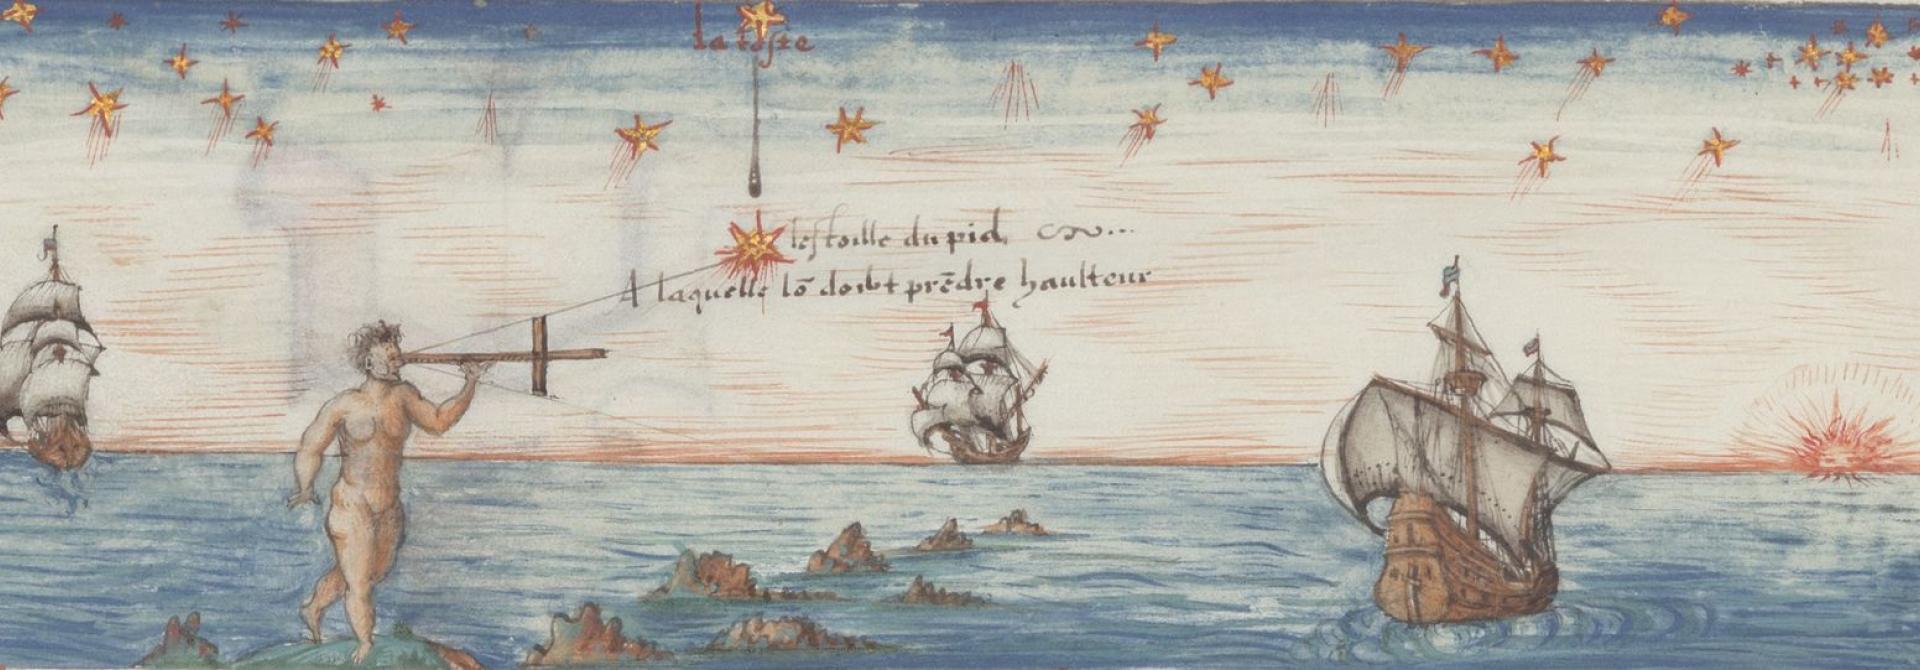 la teste
lestoille du pid,
A laquelle lō doibt prēdre haulteur